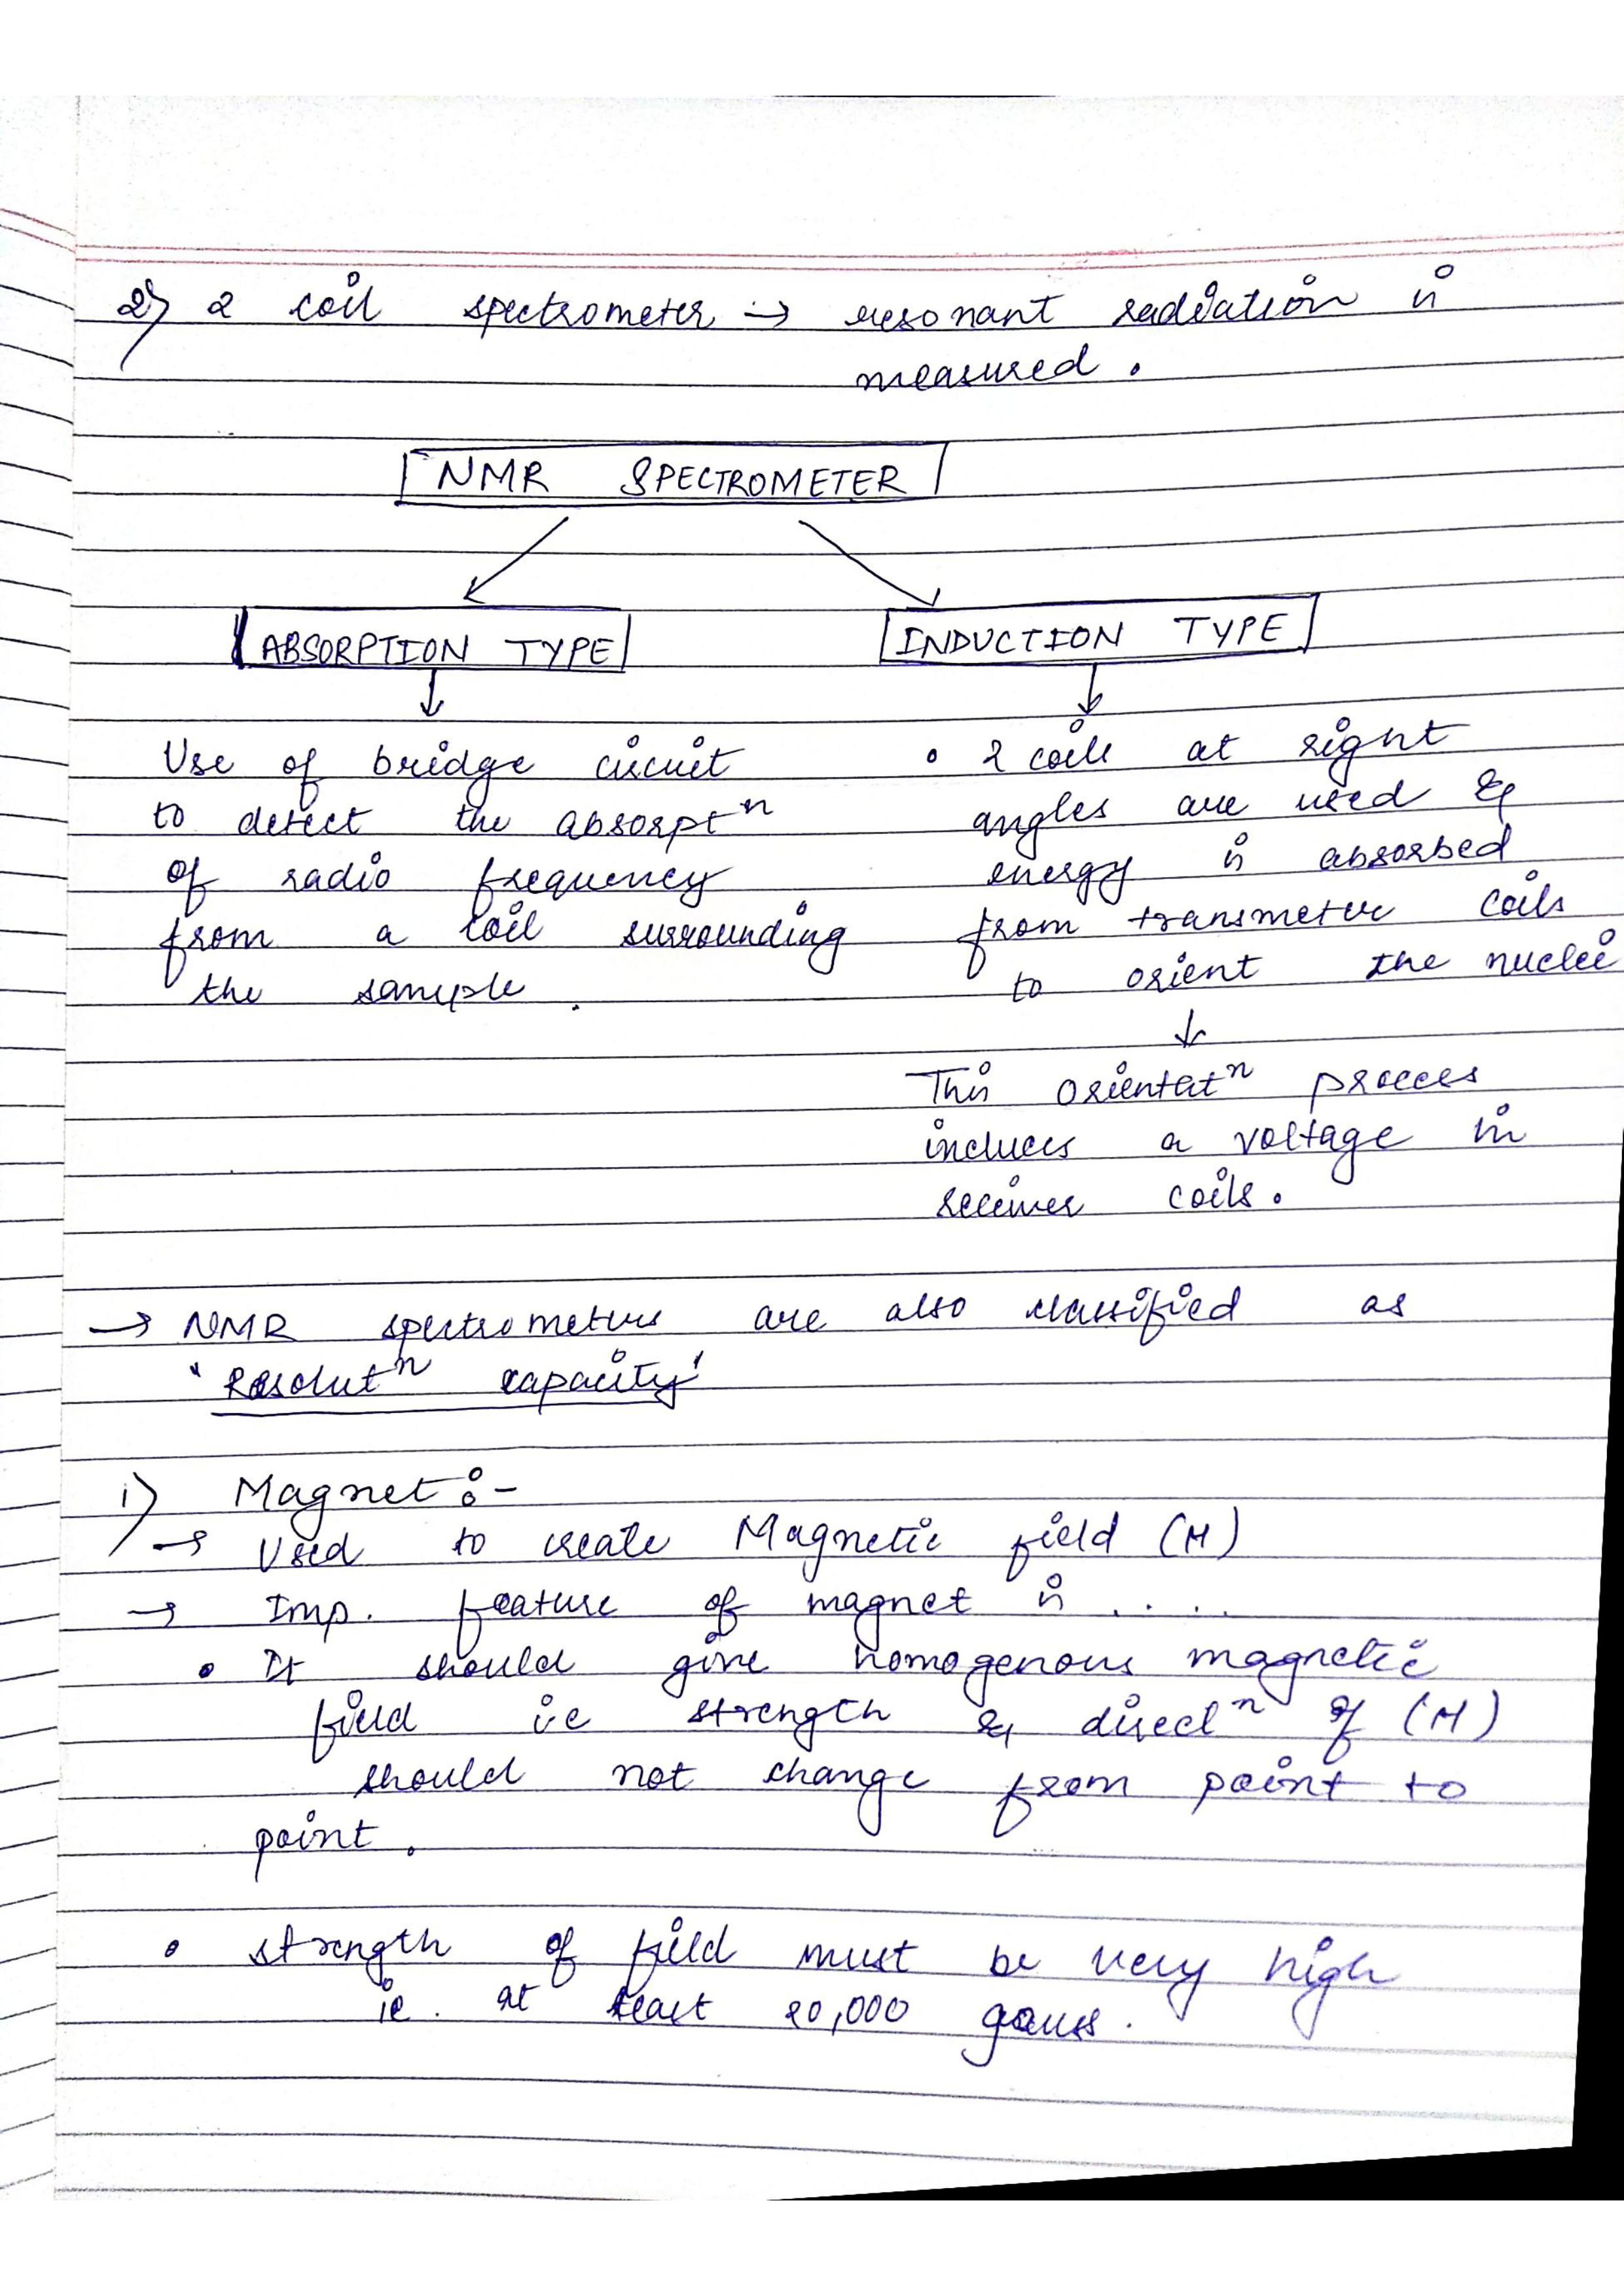 2) 2 coil spectrometer → resonant radiation is
measured.
NMR SPECTROMETER
ABSORPTION TYPE
Use of bridge circuit
to detect the absorptⁿ
of radio frequency
from a coil surrounding
the sample.
INDUCTION TYPE
• 2 coils at right
angles are used &
energy is absorbed
from transmeter coils
to orient the nuclei
↓
This orientatⁿ process
induces a voltage in
receiver coils.
→ NMR spectrometers are also classified as
'Resolutⁿ capacity'
i) Magnet :-
→ Used to create Magnetic field (H)
→ Imp. feature of magnet is ....
• It should give homogenous magnetic
field ie strength & directⁿ of (H)
should not change from point to
point.
• strength of field must be very high
ie. at least 20,000 gauss.